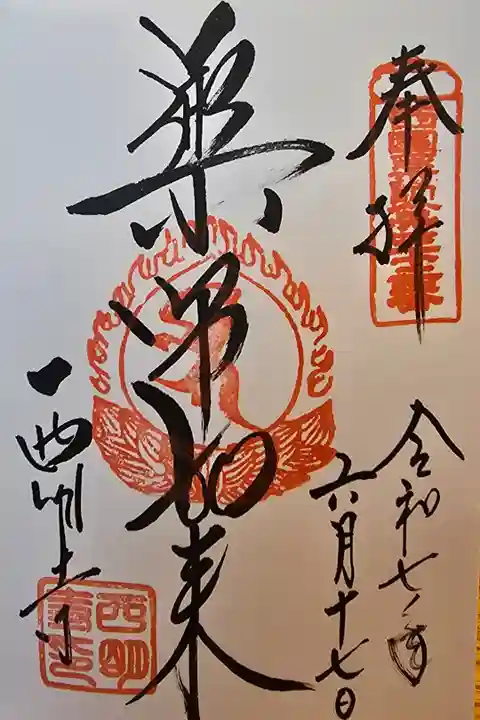 奉拝
令和七年
六月十七日
薬師如来
西明寺
西明